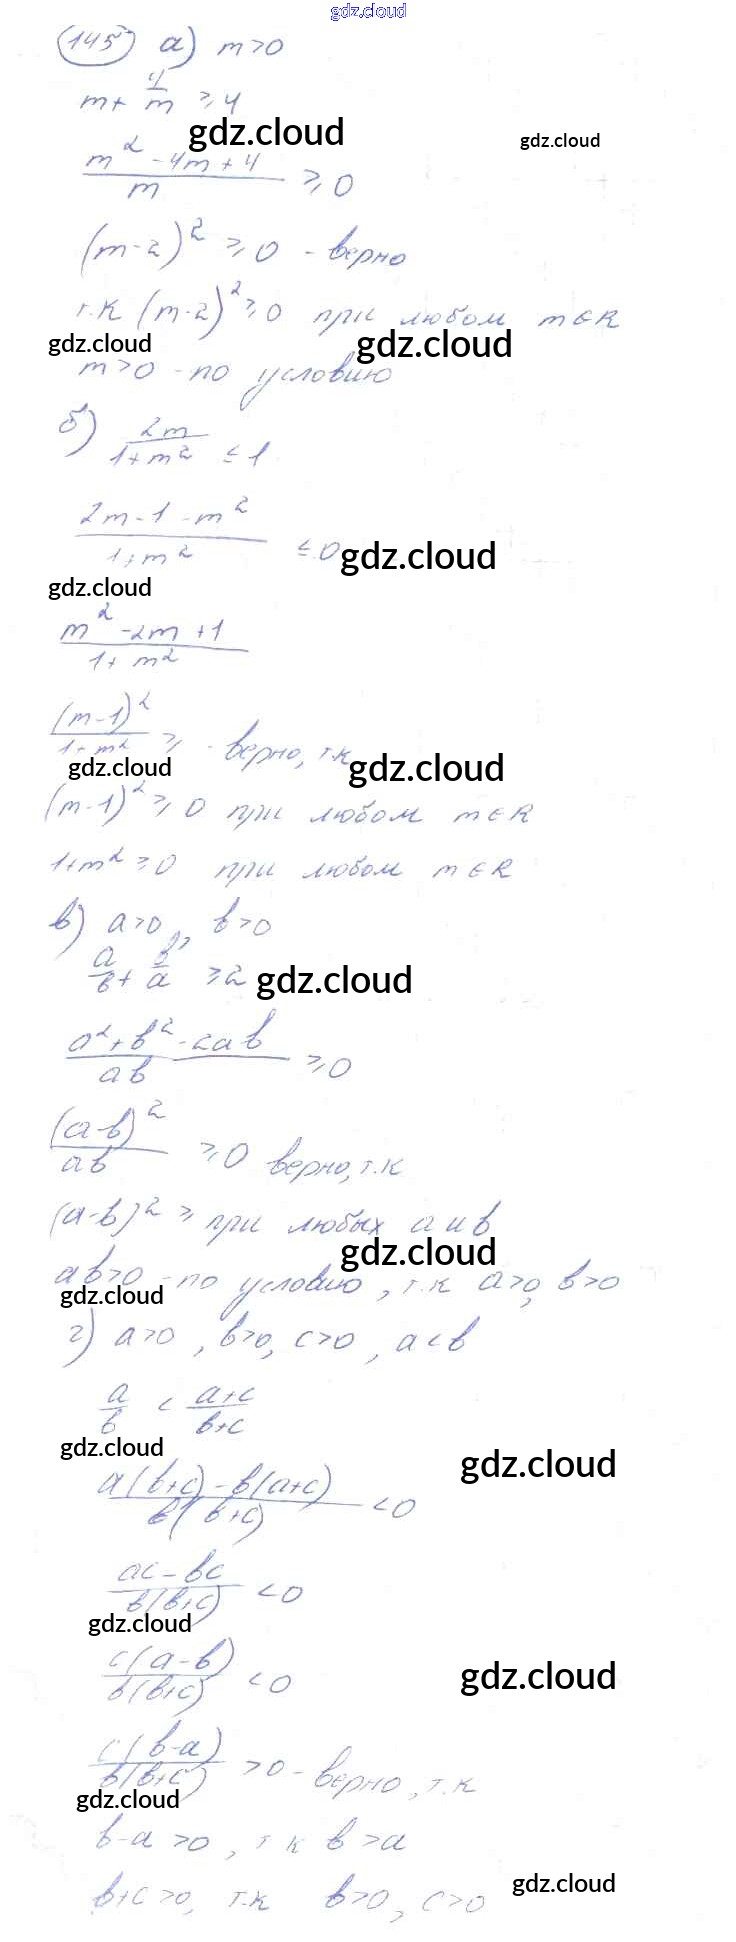 gdz.cloud
145 а) m>0
m + 4/m ≥ 4
gdz.cloud
gdz.cloud
(m² - 4m + 4)/m ≥ 0
(m-2)² ≥ 0 - верно
т.к (m-2)² ≥ 0 при любом m∈R
gdz.cloud
gdz.cloud
m>0 - по условию
б) 2m/(1+m²) ≤ 1
(2m - 1 - m²)/(1+m²) ≤ 0
gdz.cloud
gdz.cloud
(m² - 2m + 1)/(1+m²)
(m-1)²/(1+m²) ≥ - верно, т.к
gdz.cloud
gdz.cloud
(m-1)² ≥ 0 при любом m∈R
1+m² ≥ 0 при любом m∈R
в) a>0, b>0
a/b + b/a ≥ 2
gdz.cloud
(a² + b² - 2ab)/ab ≥ 0
(a-b)²/ab ≥ 0 верно, т.к
(a-b)² ≥ при любых a и b
gdz.cloud
ab>0 - по условию, т.к a>0, b>0
gdz.cloud
г) a>0, b>0, c>0, a<b
a/b < (a+c)/(b+c)
gdz.cloud
gdz.cloud
(a(b+c) - b(a+c))/(b(b+c)) < 0
(ac - bc)/(b(b+c)) < 0
gdz.cloud
c(a-b)/(b(b+c)) < 0
gdz.cloud
c(b-a)/(b(b+c)) > 0 - верно, т.к
gdz.cloud
b-a>0, т к b>a
b+c>0, т.к b>0, c>0
gdz.cloud